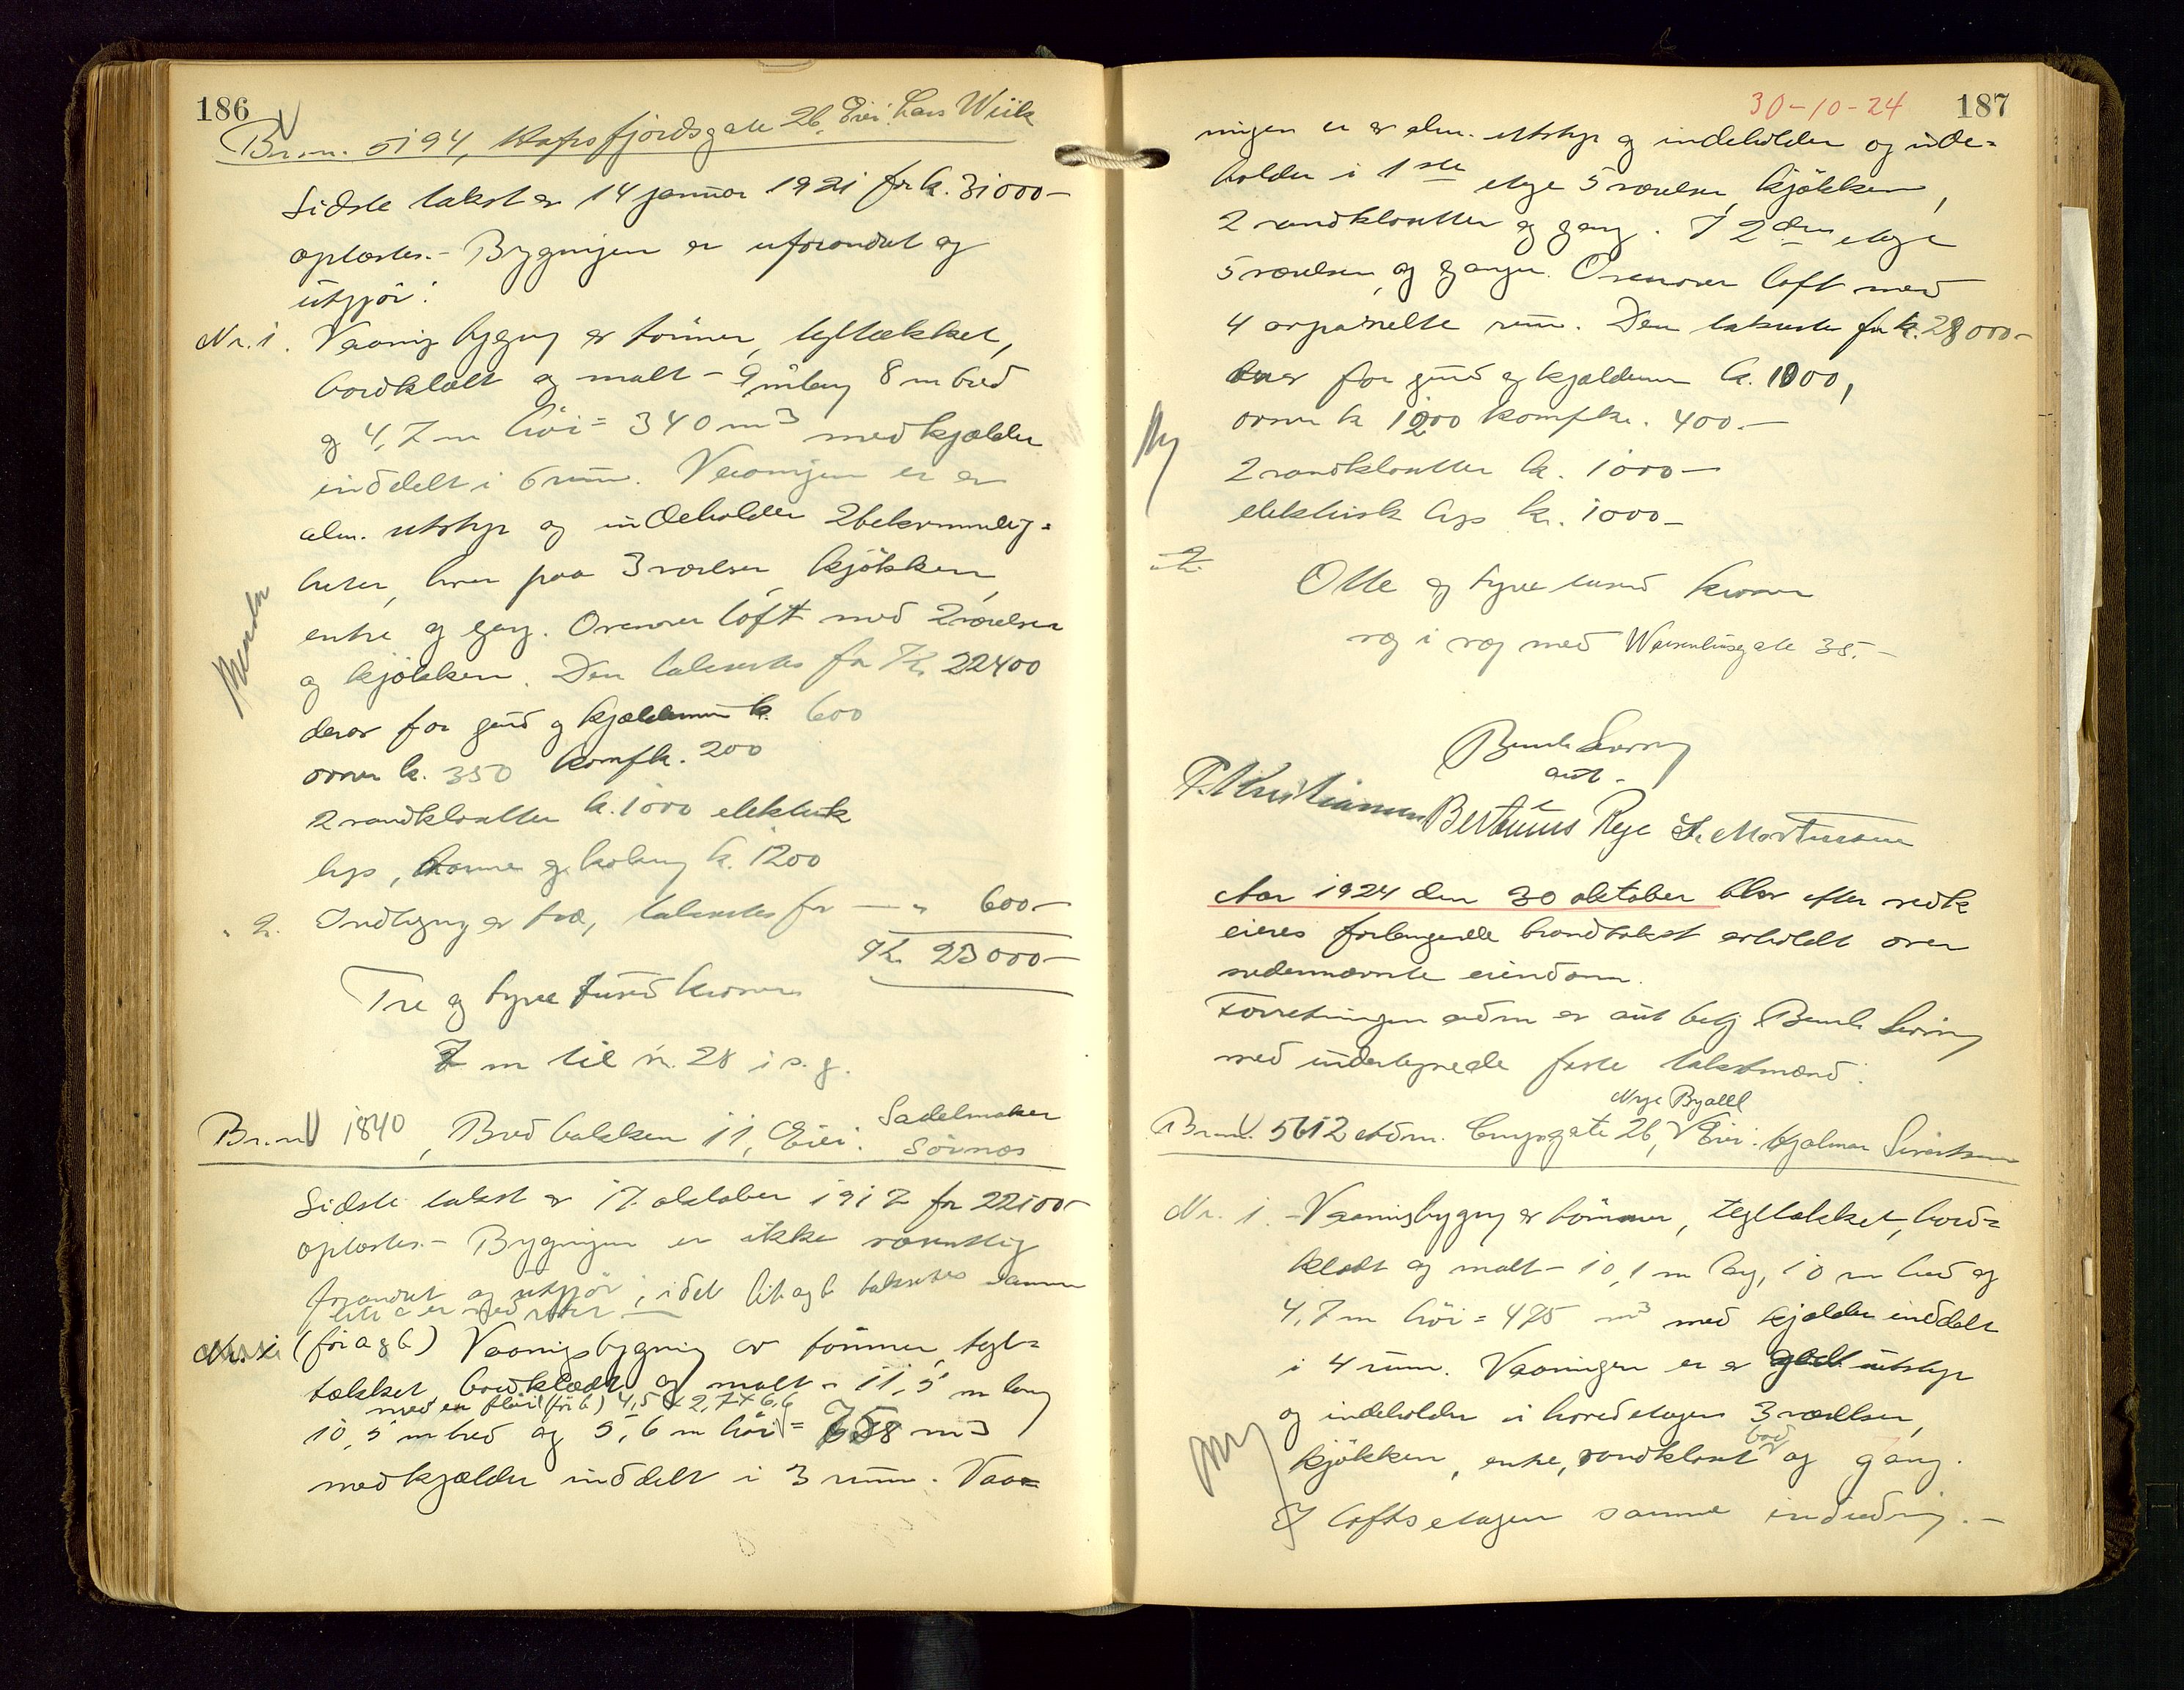 186
Br.nr. 5194, Hafrsfjordsgate 26, Eier: Lars Wiik
Sidste takst er 14 januar 1921 for k. 31000-
oplæstes.- Bygningen er uforandret og
utgjør:
Nr. 1. Vaaning bygning er tømmer, tegltækket,
bordklædt og malt - 9 m lang 8 m bred
og 4,7 m høi = 340 m3 med kjælder
inddelt i 6 rum. Vaaningen er av
alm. utstyr og indeholder 2 bekvemmelig=
heter, hver paa 3 værelser, kjøkken,
entre og gang. Ovenover loft med 2 værelser
og kjøkken. Den takseres for Kr. 22400
derav for grund og kjælderrum k. 600
ovner k. 350 komf k. 200
2 vandklosetter k. 1000 elektrisk
lys, varme og kokning k. 1200
" 2. Indhegning er træ, takseres for — " 600-
Kr. 23000-
Tre og tyve tusend kroner
7 m til nr. 28 i s. g.
Br.nr. 1840, Bredbakken 11, Eier: Sadelmaker
Sörnæs
Sidste takst er 17. oktober 1917 for 22100-
oplæstes.- Bygningen er ikke væsentlig
forandret og utgjør, idet lit. a og b takseres samme
lit. c er nedrevet —
Nr. 1 (for a og b) Vaaningsbygning av tømmer, tegl=
tækket, bordklædt og malt - 11,5 m lang
med en fløi (for b) 4,5 x 2,7 x 6,6
10,5 m bred og 5,6 m høi = 758 m3
med kjælder inddelt i 3 rum. Vaa=
30-10-24 187
ningen er av alm. utstyr og indeholder og inde=
holder i 1ste etage 5 værelser, kjøkken,
2 vandklosetter og gang. I 2den etage
5 værelser, og ganger. Ovenover loft med
4 avpanelte rum. Den takseres for k. 28000-
derav for grund og kjælderrum k. 1000,
Ny
ovner k 1200 komf kr. 400.-
2 vandklosetter k. 1000-
elektrisk lys kr. 1000-
Otte og tyve tusend kroner
væg i væg med Waisenhusgate 35.-
Bernh Severing
aut.
T. Kristiansen Bertinius Rege L. Mortensen
Aar 1924 den 30 oktober blev efter vedk
eieres forlangende brandtakst avholdt over
nedennævnte eiendom.
Forretningen adm av aut betj Bernh Severing
med undertegnede faste takstmænd:
Mrge Byalll
Br.nr. 5612 Adm. Langgate 26, Eier: Hjalmar Sivertsen
Nr. 1. Vaaningsbygning er tømmer, tegltækket, bord=
klædt og malt - 10,1 m lang, 10 m bred og
4,7 m høi = 475 m3 med kjælder inddelt
i 4 rum. Vaaningen er av godt utstyr
og indeholder i hovedetagen 3 værelser,
bad
kjøkken, entre, vandkloset og gang.
Ny
I loftsetagen samme indredning.-